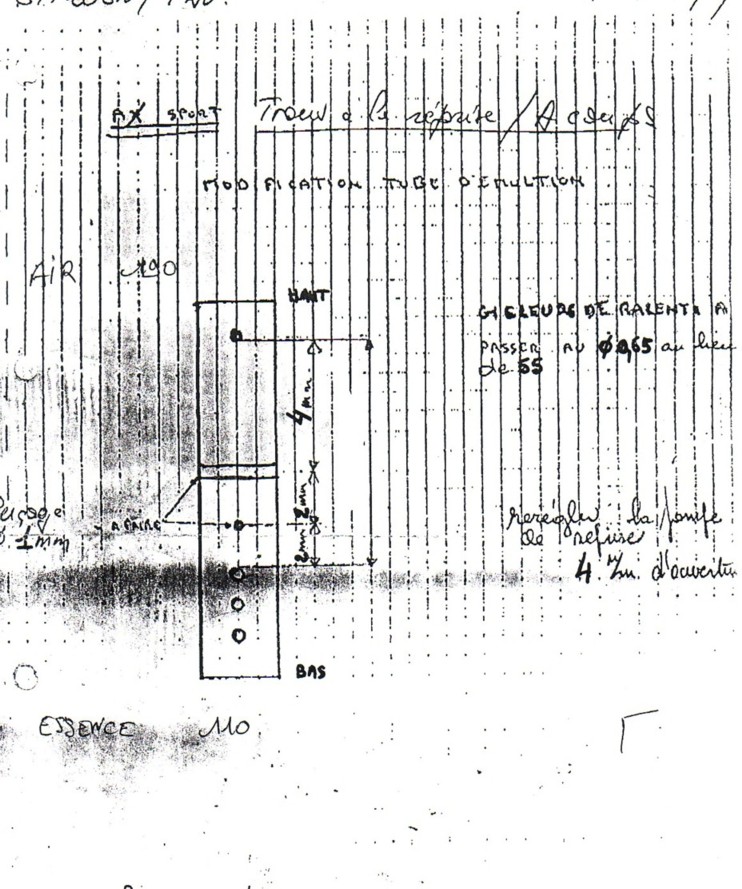 AX SPORT Trou à la reprise / A coups
MODIFICATION TUBE D'EMULTION
AIR 190
HAUT
GICLEURS DE RALENTI A
PASSER AU Ø 0,65 au lieu
de 55
4 mm
2 mm
2 mm
A FAIRE
1 mm
reregler la pompe
de reprise
4. m/m. d'ouvertu
BAS
ESSENCE 110